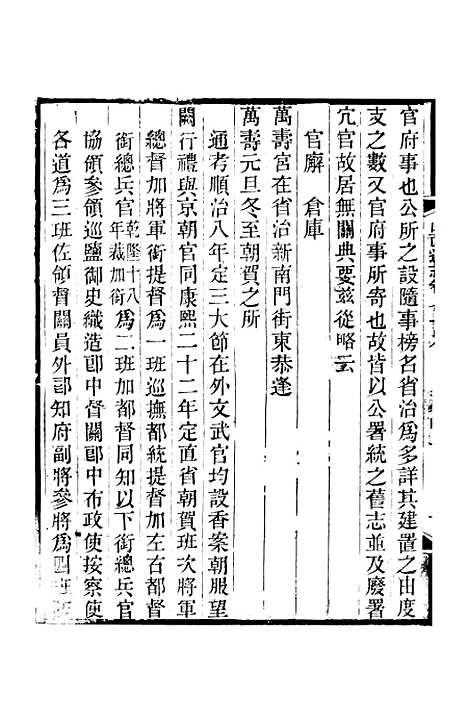 官府事也公所之設隨事榜名省治爲多詳其建置之由度
支之數又官府事所寄也故皆以公署統之舊志並及廢署
宂官故居無關典要茲從略云
官廨　倉庫
萬壽宮在省治新南門街東恭逢
萬壽元旦冬至朝賀之所
通考順治八年定三大節在外文武官均設香案朝服望
闕行禮與京朝官同康熙二十二年定直省朝賀班次將軍
總督加將軍銜提督爲一班巡撫都統提督加左右都督
銜總兵官乾隆十八年裁加銜爲二班加都督同知以下銜總兵官
協領參領巡鹽御史織造郎中督關郎中布政使按察使
各道爲三班佐領督關員外郎知府副將參將爲四班